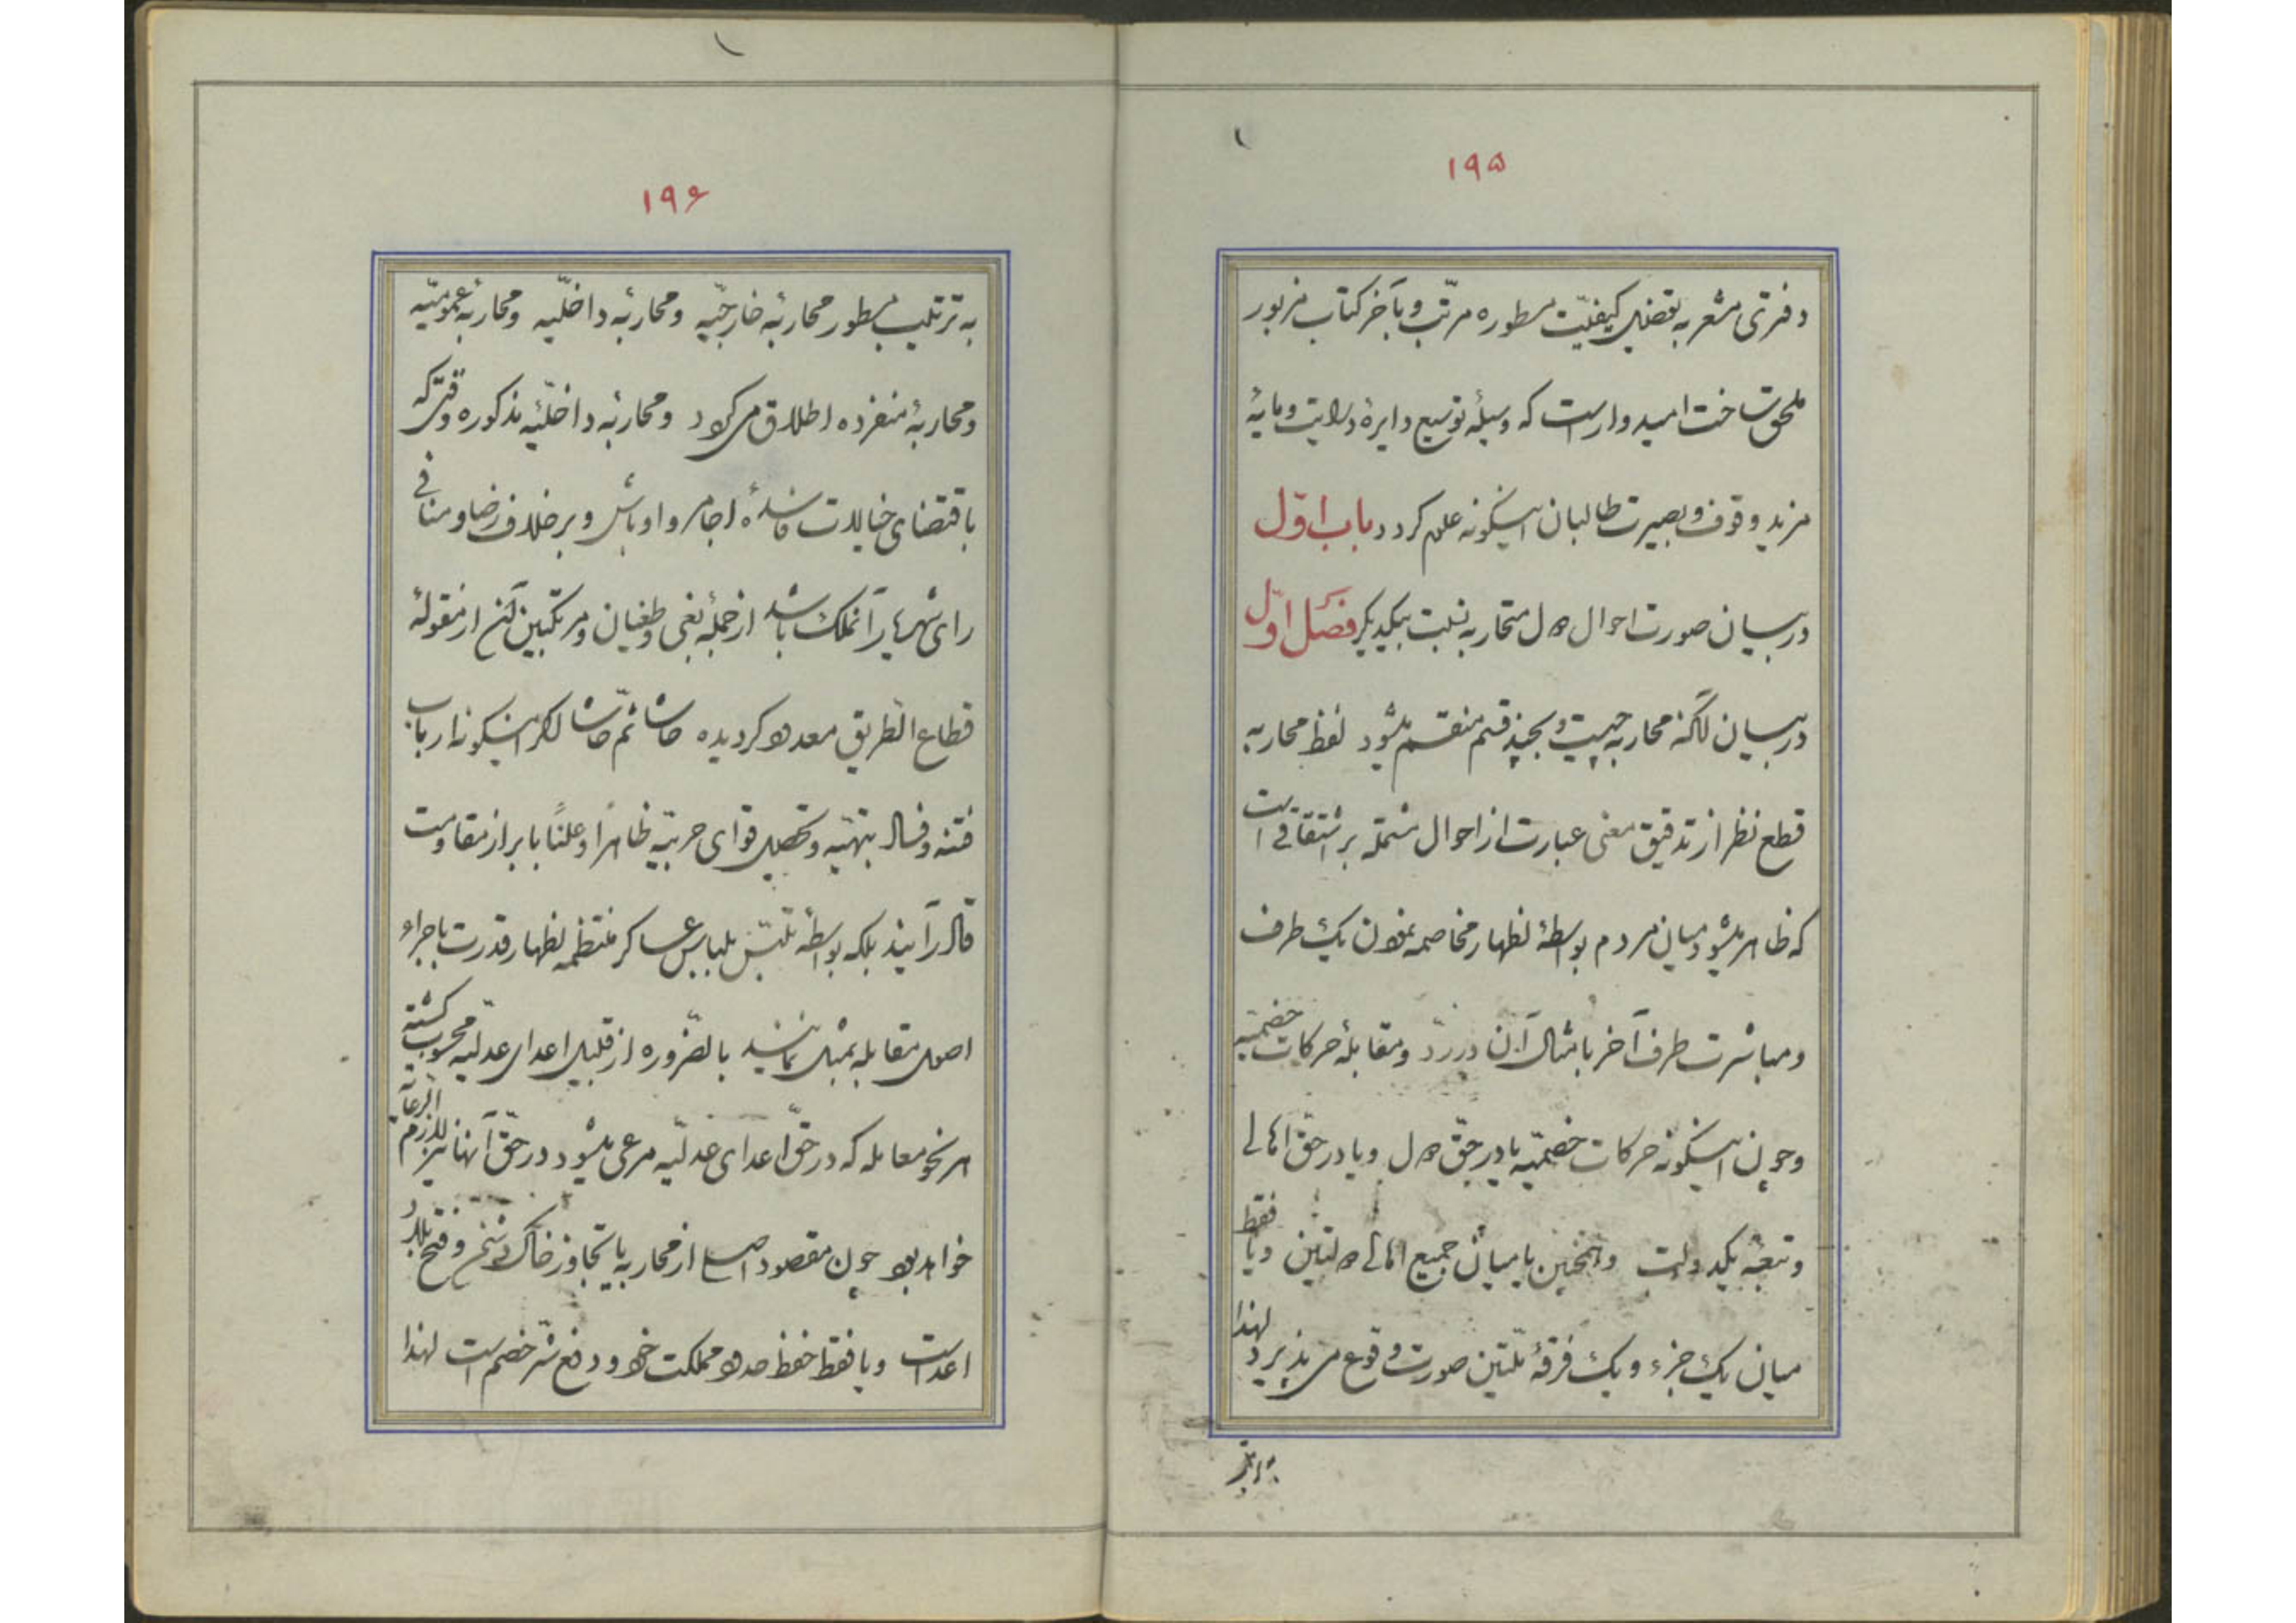 ۱۹۵
دفتری مشعر به تفصیل کیفیّت مسطوره مرتّب و بآخر کتاب مزبور
ملحق ساخت امیدوار است که وسیلهٔ توسیع دایرهٔ درایت و مایهٔ
مزید وقوف و بصیرت طالبان اینگونه علم کردد باب اوّل
در بیان صورت احوال دول متحاربه نسبت بیکدیکر فصل اوّل
در بیان آنکه محاربه چیست و بچند قسم منقسم میشود لفظ محاربه
قطع نظر از تدقیق معنی عبارت از احوال مشتمله بر شقاقی است
که ظاهر میشود میان مردم بواسطهٔ اظهار مخاصمه نمودن یک طرف
و مباشرت طرف آخر بامثال آن در رد و مقابلهٔ حرکات خصمیّه
و چون اینگونه حرکات خصمیّه یا در حقّ دول و یا در حقّ اهالی
و تبعهٔ یکدولت و همچنین یا میان جمیع اهالی دولتین و یا فقط
میان یک جزء و یک فرقهٔ ملّتین صورت وقوع می پذیرد لهذا
به ترتیب
۱۹۶
به ترتیب مسطور محاربهٔ خارجیّه و محاربهٔ داخلیّه و محاربهٔ عمومیّه
و محاربهٔ منفرده اطلاق می کردد و محاربهٔ داخلیّهٔ مذکوره وقتی که
باقتضای خیالات فاسدهٔ اجامر و اوباش و برخلاف رضا و منافی
رای شهریار آنملک باشد از جملهٔ بغی و طغیان و مرتکبین آن از مقولهٔ
قطاع الطریق معدود کردیده حاشا ثمّ حاشا اکر اینگونه ارباب
فتنه و فساد بتهیّه و تحصیل قوای حربیّه ظاهراً و علناً بابراز مقاومت
قادر آیند بلکه بواسطهٔ تلبّس بلباس عساکر منتظمه اظهار قدرت باجراء
اصول مقابله بمثل نمایند بالضّروره از قبیل اعدای عدلیّه محسوب کشته
هر نحو معامله که در حقّ اعدای عدلیّه مرعی میشود در حقّ آنها نیز لازم الرعایه
خواهد بود چون مقصود اصلی از محاربه یا تجاوز خاک دشمن و فتح بلاد
اعداست و یا فقط حفظ حدود مملکت خود و دفع شرّ خصم است لهذا